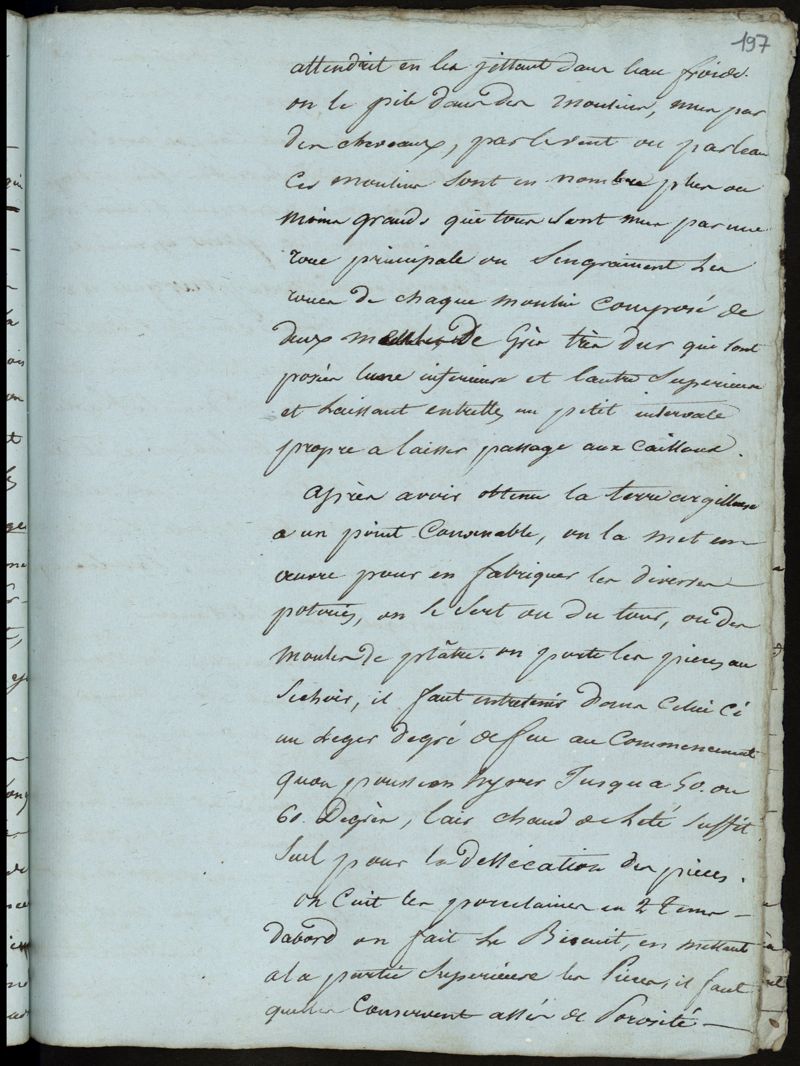 197
attendrit en les jettant dans leau froide.
on le pile dans des moulins, mus par
des chevaux, par le vent ou par leau
Ces moulins sont en nombre plus ou
moins grands que tous sont mus par une
roue principale ou Sengrainent Les
roues de chaque moulin composé de
deux meules De Grès très dur qui sont
posées lune inferieure et lautre Superieure
et Laissant entrelles un petit intervale
propre a laisser passage aux Cailloux.
après avoir obtenu la terre argilleuse
a un point Convenable, on la met en
œuvre pour en fabriquer les diverses
poteries, on se sert ou du tour, ou des
moules de plâtre. on porte les pieces au
Sechoir, il faut entretenir dans Celui Ci
un Leger degré de feu au Commencement
quon pousse en hyver Jusqu a 50. ou
60. Degrès, lair chaud de Leté Suffit
Seul pour la dessécation des pieces.
on Cuit les porcelaines en 2 tems
dabord on fait Le Biscuit, en mettant
a la partie Superieure les Pieces, il faut
quelles Conservent assés de Porosité